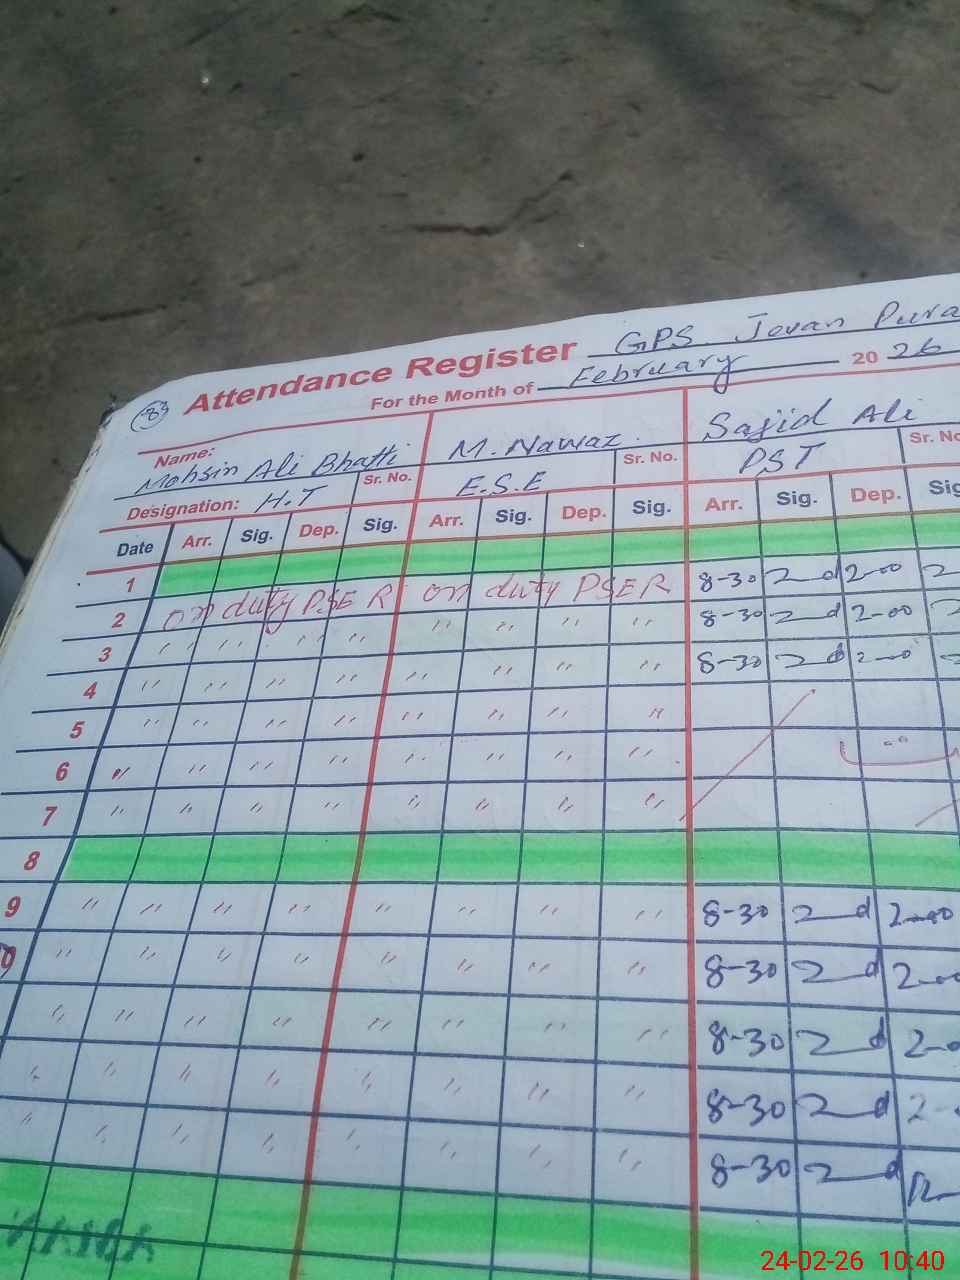 83
Attendance Register GPS Jovan Pura
For the Month of February 20 26
Name: Mohsin Ali Bhatti M. Nawaz. Sajid Ali
Designation: H.T Sr. No. E.S.E Sr. No. PST Sr. No
Date Arr. Sig. Dep. Sig. Arr. Sig. Dep. Sig. Arr. Sig. Dep. Sig
1
2 on duty PSER on duty PSER 8-30 2-00
3 " " " " " " " " " 8-30 2-00
4 " " " " " " " " 8-30 2-00
5 " " " " " " " "
6 " " " " " " " "
7 " " " " " " " "
8
9 " " " " " " " " 8-30 2-00
10 " " " " " " " " 8-30 2-00
" " " " " " " " 8-30 2-0
" " " " " " " " 8-30 2-
" " " " " " " " 8-30 12-
24-02-26 10:40